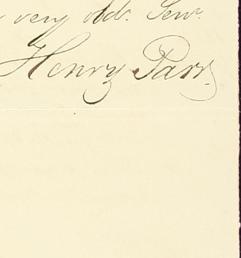 very obdt. Serv.
Henry Parr